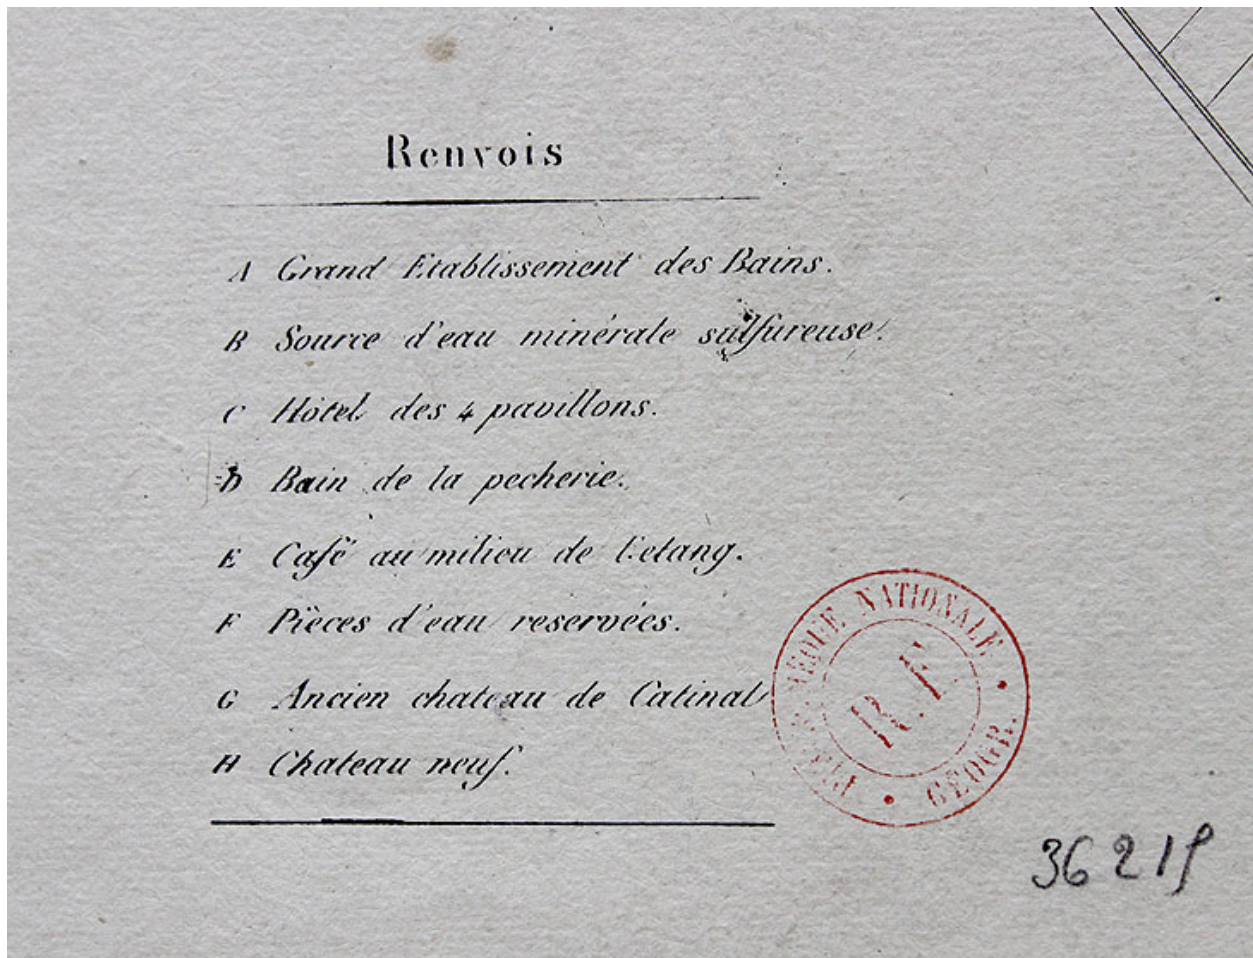 Renvois
A Grand Etablissement des Bains.
B Source d'eau minérale sulfureuse.
C Hôtel des 4 pavillons.
D Bain de la pecherie.
E Café au milieu de l'etang.
F Pièces d'eau reservées.
G Ancien chateau de Catinat
H Chateau neuf.
NATIONALE
GÉOGR.
R.F.